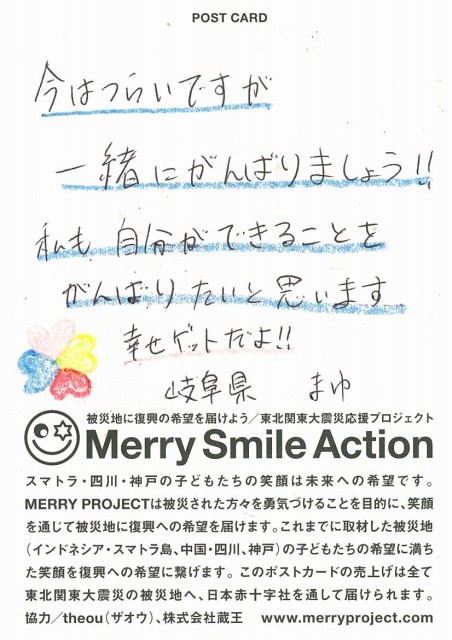 POST CARD
今はつらいですが
一緒にがんばりましょう!!
私も 自分ができることを
がんばりたいと思います
幸せゲットだよ!!
岐阜県 まゆ
被災地に復興の希望を届けよう／東北関東大震災応援プロジェクト
Merry Smile Action
スマトラ・四川・神戸の子どもたちの笑顔は未来への希望です。
MERRY PROJECTは被災された方々を勇気づけることを目的に、笑顔
を通じて被災地に復興への希望を届けます。これまでに取材した被災地
(インドネシア・スマトラ島、中国・四川、神戸)の子どもたちの希望に満ち
た笑顔を復興への希望に繋げます。このポストカードの売上げは全て
東北関東大震災の被災地へ、日本赤十字社を通して届けられます。
協力／theou(ザオウ)、株式会社蔵王 www.merryproject.com